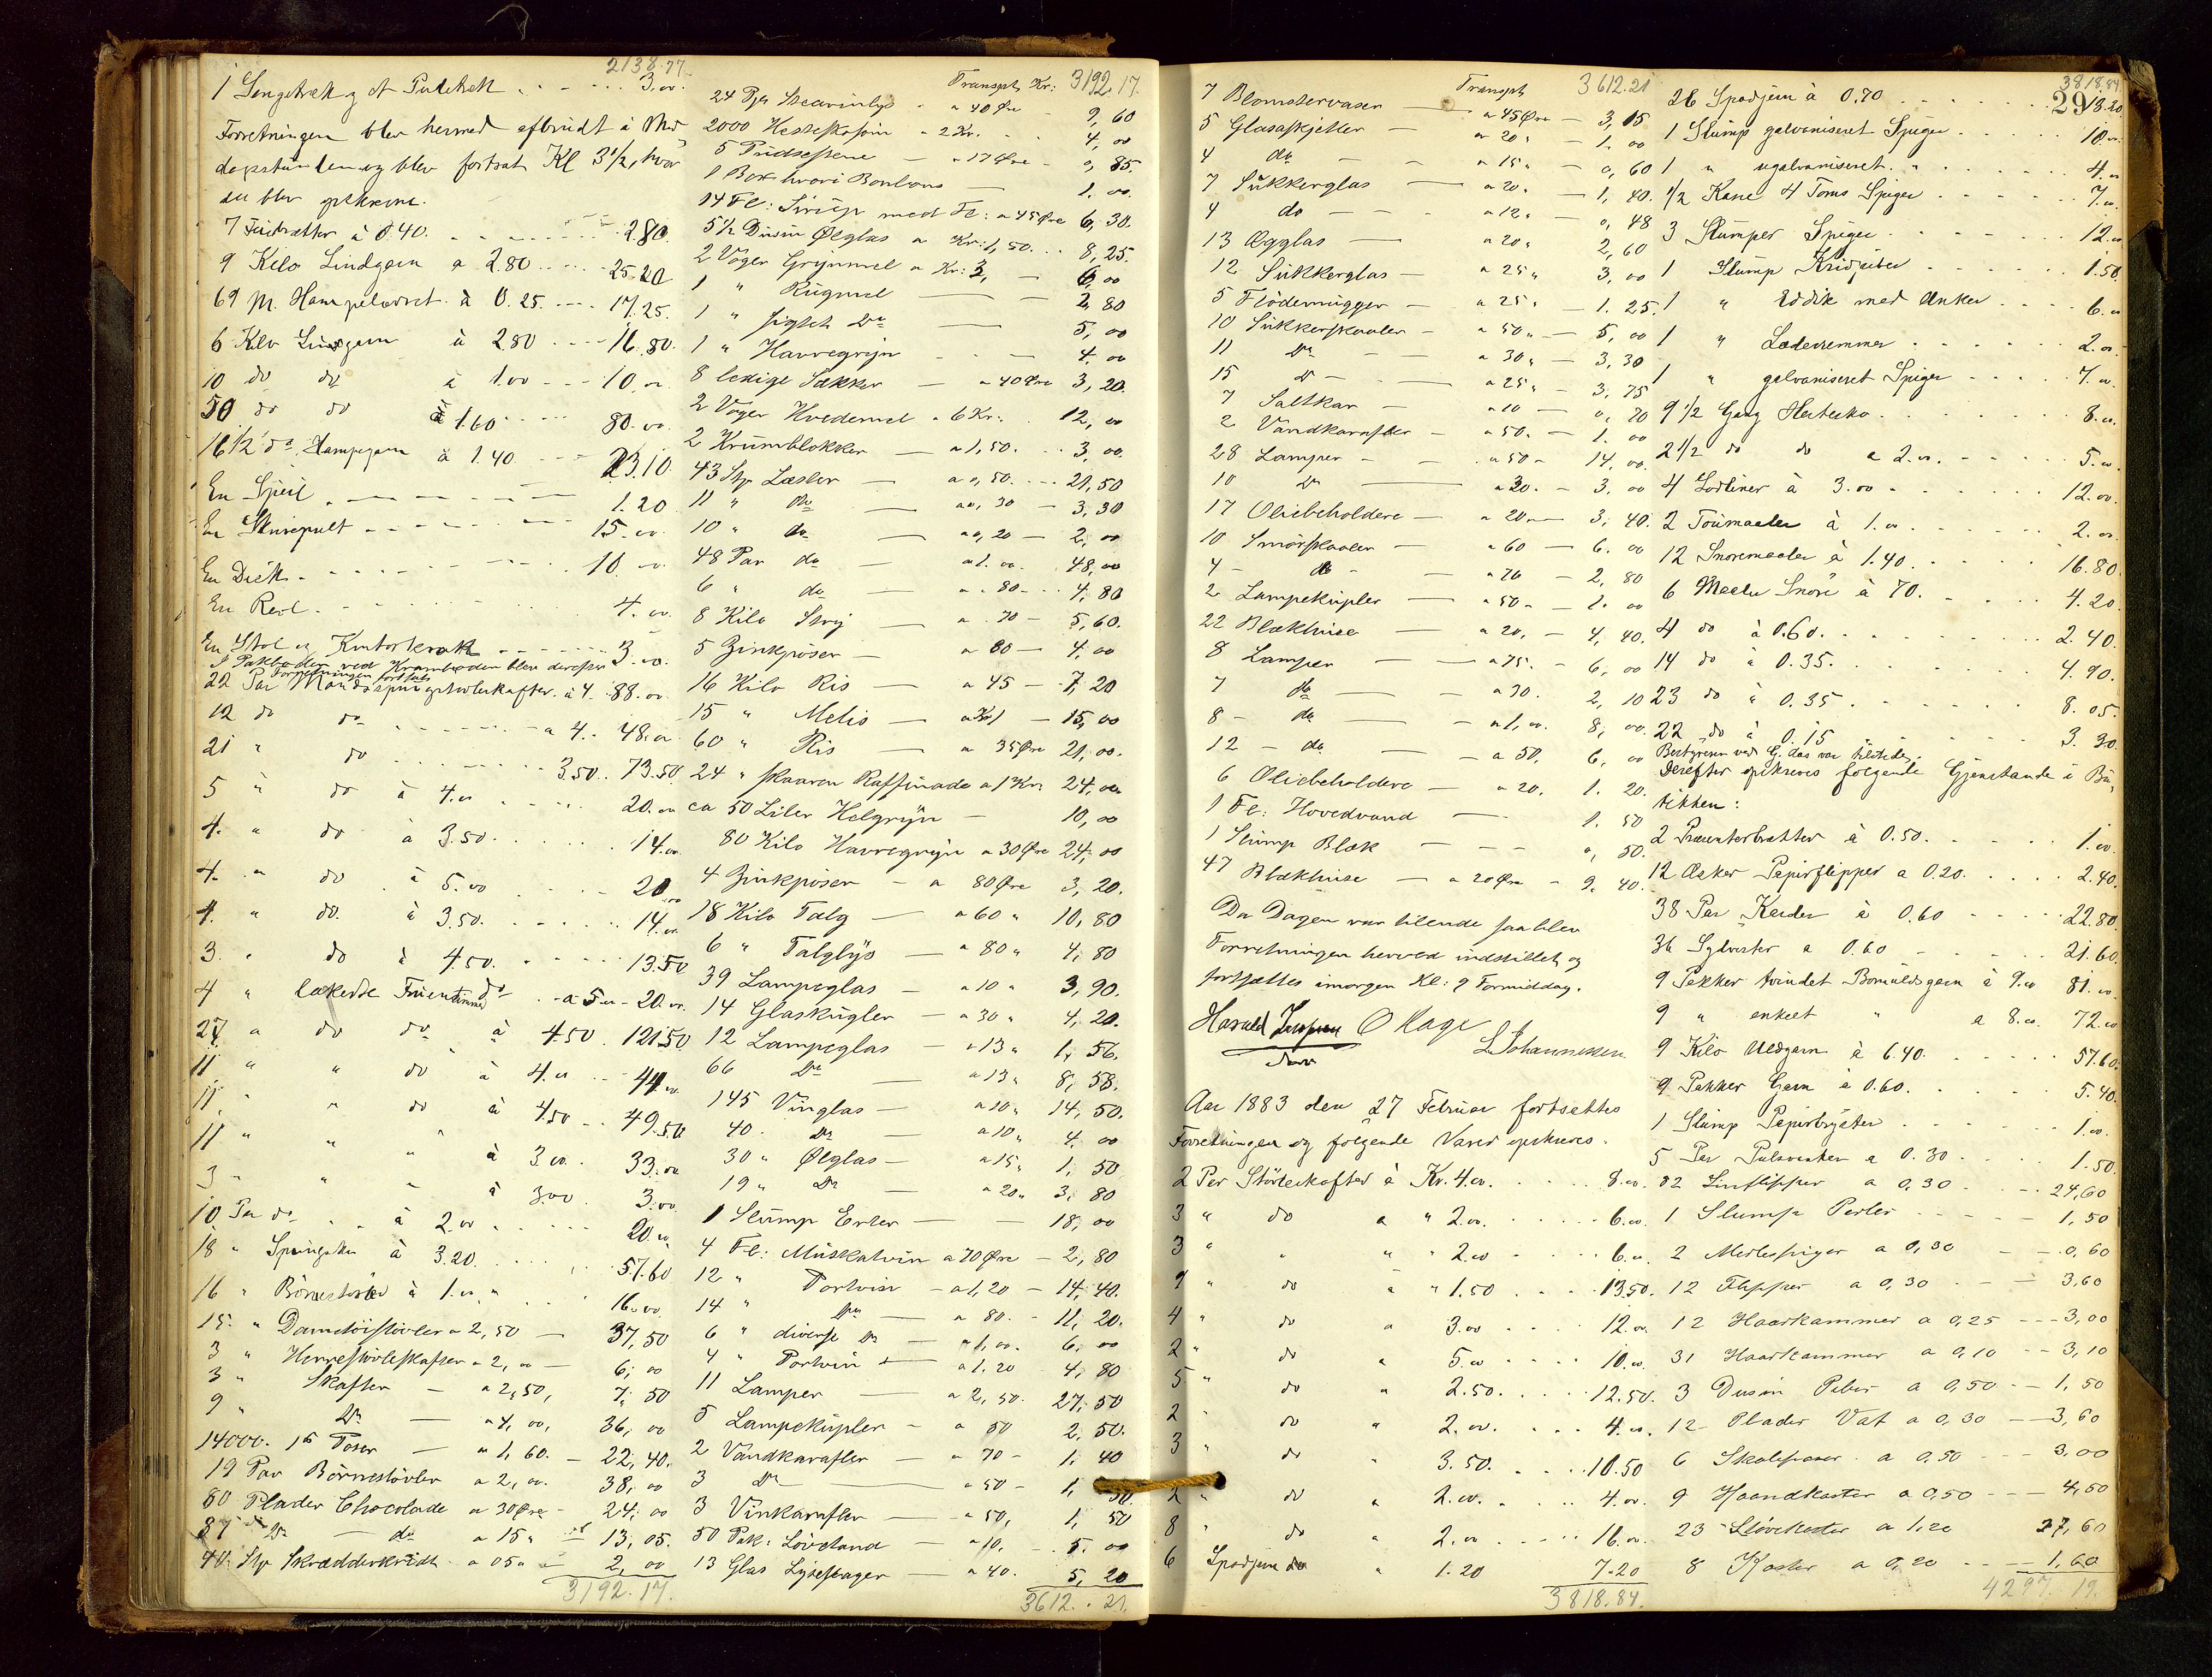 2138.77
1 Sengetræk og et Putetræk 3.00
Forretningen blev hermed afbrudt i Mid
dagsstunden og blev fortsat Kl 3 1/2, hvor
der blev opskreven.
7 à 0.40. 2.80.
9 Kilo Lindgarn a 2.80 25.20
69 M. Hampelærret à 0.25. 17.25.
6 Kilo Lingarn à 2.80 16.80.
10 do do à 1.00 10.00
50 do do à 1.60 80.00
16 1/2 do Hampegarn à 1.40 23.10.
En Speil 1.20
En Skrivepult 15.00
En Disk 10.00
En Reol 4.00
En Stol og Kontorkrak 3.00.
I Pakboden ved Kramboden blev derefter
Forretningen fortsat
22 Par Mandsspringstøvleskafter à 4. 88.00
12 do do a 4. 48.00
21 " do 3.50. 73.50
5 " do à 4.00 20.00
4. " do à 3.50. 14.00
4. " do à 5.00 20.00
4. " do. à 3.50. 14.00
3. " do à 4.50. 13.50
4 " lakerede Fruentimmer do a 5.00 20.00
27 " do do à 4.50 121.50
11 " " do à 4.00 44.00
11 " " do à 4.50 49.50
11 " " " à 3.00. 33.00
3 " " " à 3.00 3.00.
10 Par do à 2.00 20.00
18 " Springsko à 3.20. 57.60
16 " Børnestøvler à 1.00 16.00
15. " Dametøistøvler a 2,50 37,50
3 " Herrestøvleskafter a 2,00 6,00
3 " Skafter a 2,50, 7,50
9 " Do a 4,00, 36,00
14000. Poser a 1,60. 22,40.
19 Par Børnestøvler a 2,00. 38,00
80 Plader Chocolade a 30 Øre 24,00
87 Do do a 15 " 13,05.
40. Stp Skrædderkridt a 05 " 2,00
3192.17.
Transpt, Kr: 3192.17.
24 Pk Stearinlys a 40 Øre 9,60
2000 Hesteskosøm a 2 Kr. 4,00
5 Pudsestene a 17 Øre 0,85.
1 Box hvori Bonbons 1.00.
14 Fl: Sirup med Fl: a 45 Øre 6,30.
5 1/2 Dusin Ølglas a Kr: 1,50. 8,25.
2 Voger Grynmel a Kr: 3, 6,00
1 " Rugmel 2,80
1 " sigtet Do 5,00
1 " Havregryn 4,00
8 ledige Sækker a 40 Øre 3,20.
2 Voger Hvedemel a 6 Kr: 12,00
2 Krumblokker a 1,50. 3,00.
43 Stp Læster a 0,50. 21,50
11 " do a 0,30 3,30
10 " do a 0,20 2,00
48 Par do a 1.00. 48,00
6 " do a 80 4,80
8 Kilo Stry a 70 5,60.
5 Zinkpøser a 80 4,00
16 Kilo Ris a 45 7,20
15 " Melis a Kr 1 15,00
60 " Ris a 35 Øre 21,00.
24 " skaaren Raffinade a 1 Kr: 24,00
ca 50 Liter Helgryn 10,00
80 Kilo Havregryn a 30 Øre 24,00
4 Zinkpøser a 80 Øre 3,20.
18 Kilo Talg a 60 " 10,80
6 " Talglys a 80 " 4,80
39 Lampeglas a 10 " 3,90.
14 Glaskugler a 30 " 4,20.
12 Lampeglas a 13 " 1,56.
66 Do a 13 " 8,58.
145 Vinglas a 10 " 14,50.
40. Do a 10 " 4.00
30 " Ølglas a 15 " 1,50
19 " Do a 20 " 3,80
1 Slump Erter 18,00
4 Fl: Muskatvin a 70 Øre 2,80
12 " Portvin a 1,20 14,40.
14 " Do a 80. 11,20.
6 " diverse Do a 1,00. 6.00
4 " Portvin a 1,20 4,80
11 Lamper a 2,50. 27,50
5 Lampekupler a 50 2,50.
2 Vandkarafler a 70 1,40
3 Do a 50 1,50.
3 Vinkarafler a 50, 1,50
50 Pak: Løvetand a 10, 5.00
13 Glas Lysestager a 40. 5,20
3612.21.
Transpt 3612.21
7 Blomstervaser a 45 Øre 3,15
5 Glasaskjetter a 20 " 1.00
4 do a 15 " 0,60
7 Sukkerglas a 20 " 1,40.
4 do a 12 " 0,48
13 Øgglas a 20 " 2,60
12 Sukkerglas a 25 " 3,00
5 Flødemugger a 25 " 1.25.
10 Sukkerskaaler a 50 " 5,00
11 Do a 30 " 3,30
15 Do a 25 " 3,75
7 Saltkar a 10 0,70
2 Vandkarafler a 50. 1.00
28 Lamper a 50 14,00.
10 Do a 30. 3.00
17 Oliebeholdere a 20 3,40.
10 Smørskaaler a 60 6.00
4 do a 70 2,80
2 Lampekupler a 50 1.00
22 Blækhuse a 20, 4,40.
8 Lamper a 75. 6,00
7 do a 30. 2,10
8 do a 1,00. 8,00.
12 do a 50. 6,00
6 Oliebeholdere a 20. 1.20.
1 Fl: Hovedvand 1.50
1 Slump Blæk 0,50.
47 Blækhuse a 20 Øre 9.40.
Da Dagen var tilende saa blev
Forretningen herved indstillet og
fortsættes imorgen Kl: 9 Formiddag.
Harald O Hage
L Johannessen
Aar 1883 den 27 Februar fortsattes
Forretningen og følgende Varer opskreves.
2 Par Støvleskafter à Kr. 4.00. 8.00.
3 " do a " 2.00. 6.00.
3 " " " " 2.00 6.00.
9 " do à " 1.50 13.50.
4 " do a 3.00 12.00
2 " do a 5.00 10.00.
5 " do " 2.50. 12.50.
2 " do " 2.00. 4.00.
3 " do " 3.50. 10.50
2 " do a 2.00. 4.00.
8 " do " 2.00 16.00
6 Spadjern do " 1.20 7.20
3818.84.
3818.84
29
26 Spadjern à 0.70 18.20
1 Slump galvaniseret Spiger 10.00.
1 " ugalvaniseret. 4.00
1/2 Kasse 4 Toms Spiger 7.00.
3 Slumper Spiger 12.00
1 Slump Kridpiber 1.50.
1 " Eddik med Anker 6.00
1 " Læderremmer 2.00.
1 " galvaniseret Spiger 7.00.
9 1/2 Gang Hestesko 8.00.
2 1/2 do do a 2.00. 5.00.
4 Lodliner à 3.00 12.00.
2 Toumaatter à 1.00 2.00.
12 à 1.40. 16.80.
6 Snøre à 70. 4.20.
4 do à 0.60. 2.40.
14 do à 0.35. 4.90.
23 do à 0.35. 8.05.
22 do à 0.15 3.30.
Derefter opskreves følgende Gjenstande i Bu
tikken:
2 Presenterbrætter à 0.50. 1.00.
12 Æsker Papirflipper a 0.20. 2.40.
38 Par Karder à 0.60 22.80.
36 a 0.60 21.60.
9 Pakker tvindet Bomuldsgarn à 9.00 81.00.
9 " enkelt " a 8.00. 72.00
9 Kilo Uldgarn à 6.40. 57.60.
9 Pakker Garn à 0.60. 5.40.
1 Slump 1.00.
5 Par Pulsvanter a 0.30. 1.50.
82 Linflipper a 0,30 24,60
1 Slump Perler 1,50
2 a 0,30 0,60
12 Flipper a 0,30 3,60
12 Haarkammer a 0,25 3,00
31 Haarkammer a 0,10 3,10
3 Dusin Piber a 0,50 1,50
12 Plader Vat a 0,30 3,60
6 Skoleposer a 0,50 3,00
9 Haandkoster a 0,50 4,50
23 Støvekoster a 1.20 27,60
8 Koster a 0,20 1,60
4297.19.